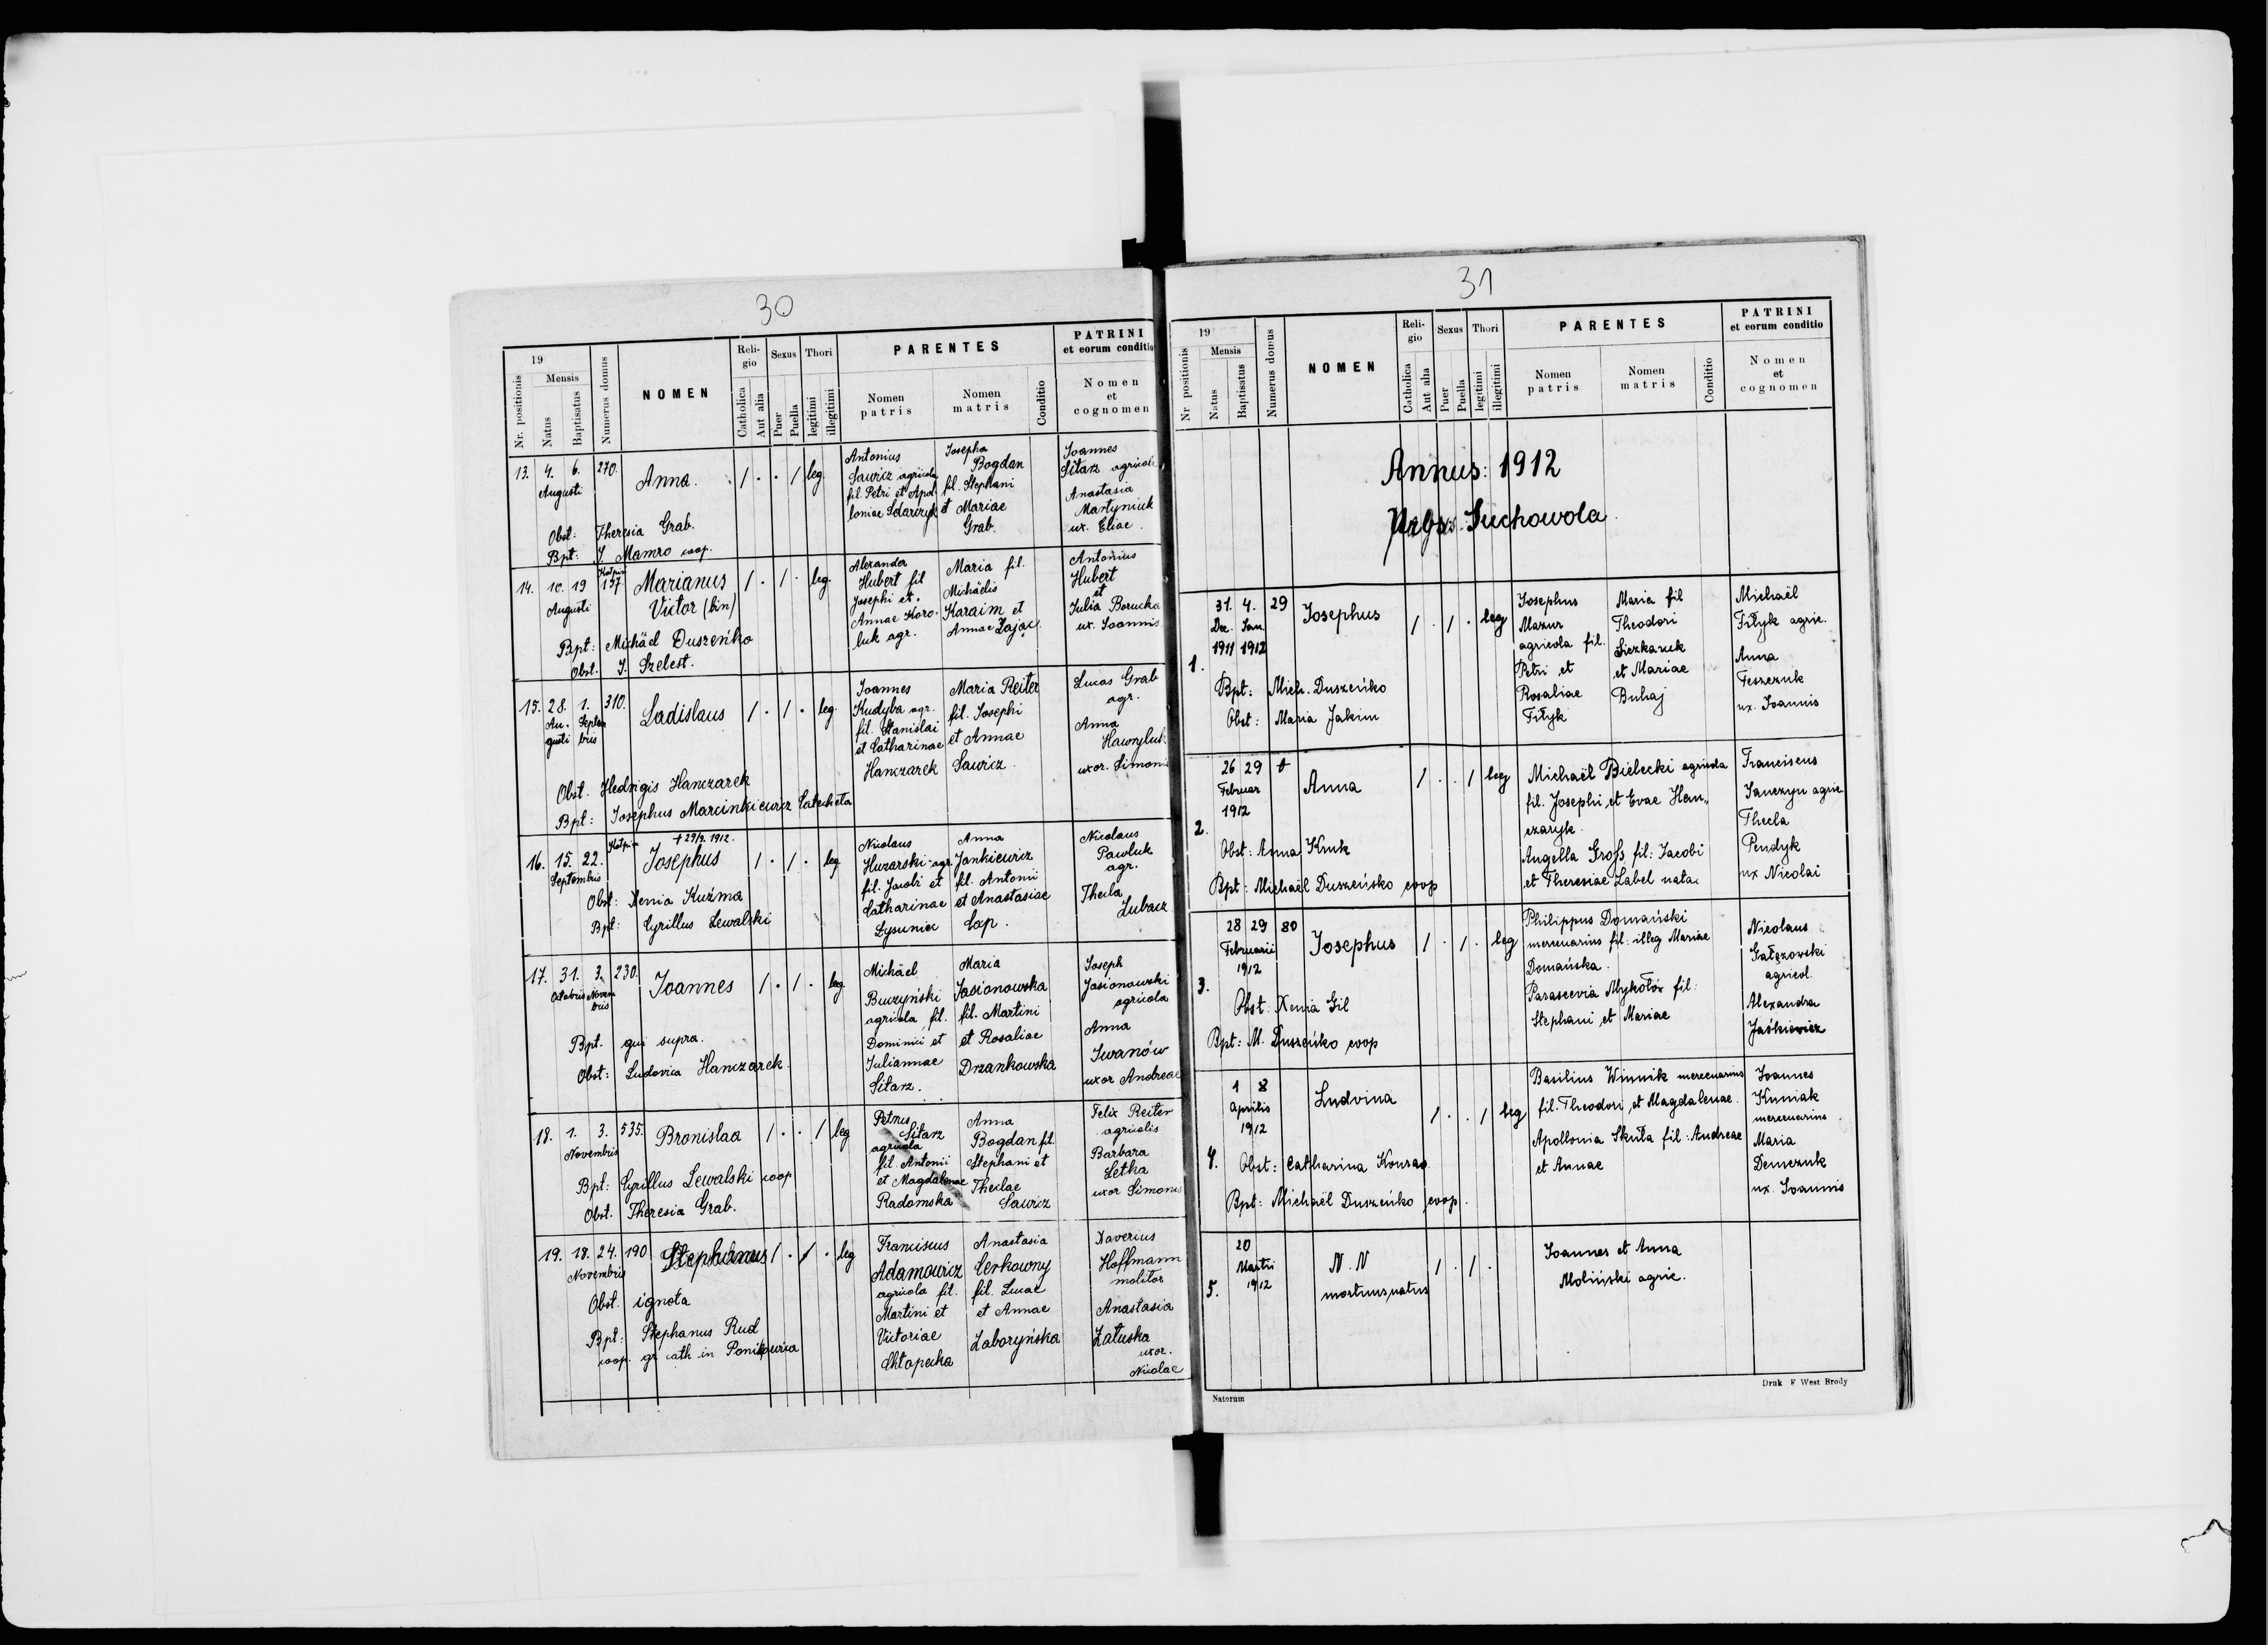 30
19
Nr. positionis
Mensis
Natus
Baptisatus
Numerus domus
NOMEN
Religio
Catholica
Aut alia
Sexus
Puer
Puella
Thori
legitimi
illegitimi
PARENTES
Nomen patris
Nomen matris
Conditio
PATRINI
et eorum conditio
Nomen
et
cognomen
13. 4. 6. 270.
Augusti
Anna.
/ . . / leg.
Antonius
Sawicz agricola
fil. Petri et Apol
loniae
Josepha
Bogdan
fil. Stephani
et Mariae
Grab.
Joannes
Sitarz agricola
Anastasia
Martyniuk
ux. Eliae.
Obst: Theresia Grab.
Bpt: J. Mamro coop.
14. 10. 19 157
Augusti
Marianus
Victor (bin)
/ . / . leg.
Alexander
Hubert fil
Josephi et.
Annae Koro-
luk agr.
Maria fil.
Michäelis
Karaim et
Annae Zając.
Antonius
Hubert
et
Julia Borucka
ux. Joannis
Bpt: Michäel Duszeńko
Obst. J. Szelest.
15. 28. 1. 310.
Au- Septem
gusti bris
Ladislaus
/ . / . leg.
Joannes
Kudyba agr.
fil. Stanislai
et Catharinae
Hanczarek
Maria Reiter
fil. Josephi
et Annae
Sawicz.
Lucas Grab
agr.
Anna
Hawryluk
uxor. Simonis
Obst. Hedvigis Hanczarek
Bpt: Josephus Marcinkiewicz Catecheta
16. 15. 22.
Septembris
+ 29/2. 1912.
Josephus
/ . / . leg.
Nicolaus
Huzarski agr.
fil. Jacobi et
Catharinae
Łysuniec
Anna
Jankiewicz
fil. Antonii
et Anastasiae
Cap.
Nicolaus
Pawluk
agr.
Thecla
Zubacz
Obst: Xenia Kuźma
Bpt: Cyrillus Lewalski
17. 31. 3. 230.
Octobris Novem
bris
Joannes
/ . / . leg.
Michäel
Buczyński
agricola, fil.
Dominici et
Juliannae
Sitarz.
Maria
Jasionowska
fil. Martini
et Rosaliae
Drzankowska
Joseph
Jasionowski
agricola
Anna
Iwanów
uxor Andreae
Bpt. qui supra.
Obst: Ludovica Hanczarek.
18. 1. 3. 535.
Novembris
Bronislaa
/ . . / leg
Petrus
Sitarz
agricola
fil. Antonii
et Magdalenae
Radomska
Anna
Bogdan fil.
Stephani et
Theclae
Sawicz
Felix Reiter
agricolis
Barbara
Letka
uxor Simonis
Bpt: Cyrillus Lewalski coop
Obst. Theresia Grab.
19. 18. 24. 190
Novembris
Stephanus
/ . / . leg
Franciscus
Adamowicz
agricola fil.
Martini et
Victoriae
Chłapecka
Anastasia
Cerkowny
fil. Lucae
et Annae
Zaboryńska
Xaverius
Hoffmann
molitor
Anastasia
Załuska
uxor.
Nicolae
Obst. ignota
Bpt: Stephanus Rud
coop. gr cath in Ponikowica
31
19
Nr positionis
Mensis
Natus
Baptisatus
Numerus domus
NOMEN
Religio
Catholica
Aut alia
Sexus
Puer
Puella
Thori
legitimi
illegitimi
PARENTES
Nomen patris
Nomen matris
Conditio
PATRINI
et eorum conditio
Nomen
et
cognomen
Annus: 1912
Suchowola
1.
31. 4. 29
Dec. Jan.
1911 1912
Josephus
/ . / . leg
Josephus
Mazur
agricola fil.
Petri et
Rosaliae
Fityk
Maria fil
Theodori
et Mariae
Buhaj
Michaël
Fityk agric.
Anna
Feszczuk
ux. Joannis
Bpt: Mich. Duszeńko
Obst: Maria Jakim
2.
26 29
Februar
1912
Anna
/ . . / leg
Michaël Bielecki agricola
fil. Josephi, et Evae Han„
czaryk.
Angella Groß fil: Jacobi
et Theresiae Label nata
Franciscus
Janczyn agric.
Thecla
Pendyk
ux Nicolai
Obst: Anna Kruk
Bpt: Michaël Duszeńsko coop
3.
28 29 80
Februarii
1912
Josephus
/ . / . leg
Philippus Domański
mercenarius fil: illeg Mariae
Domańska.
Parascevia Mykołów fil:
Stephani et Mariae
Nicolaus
Gałęzowski
agricol.
Alexandra
Jaśkiewicz
Obst: Xenia Gil
Bpt: M. Duszeńko coop
4.
1 8
Aprilis
1912
Ludvina
/ . . / leg
Basilius Winnik mercenarius
fil. Theodori, et Magdalenae.
Apollonia Skuła fil: Andreae
et Annae
Joannes
Kuniak
mercenarius
Maria
Demczuk
ux. Joannis
Obst: Catharina Konrad
Bpt: Michaël Duszeńko coop.
5.
20
Martii
1912
N. N
mortuus natus
/ . / .
Joannes et Anna
Moliński agric.
Natorum
Druk F West Brody